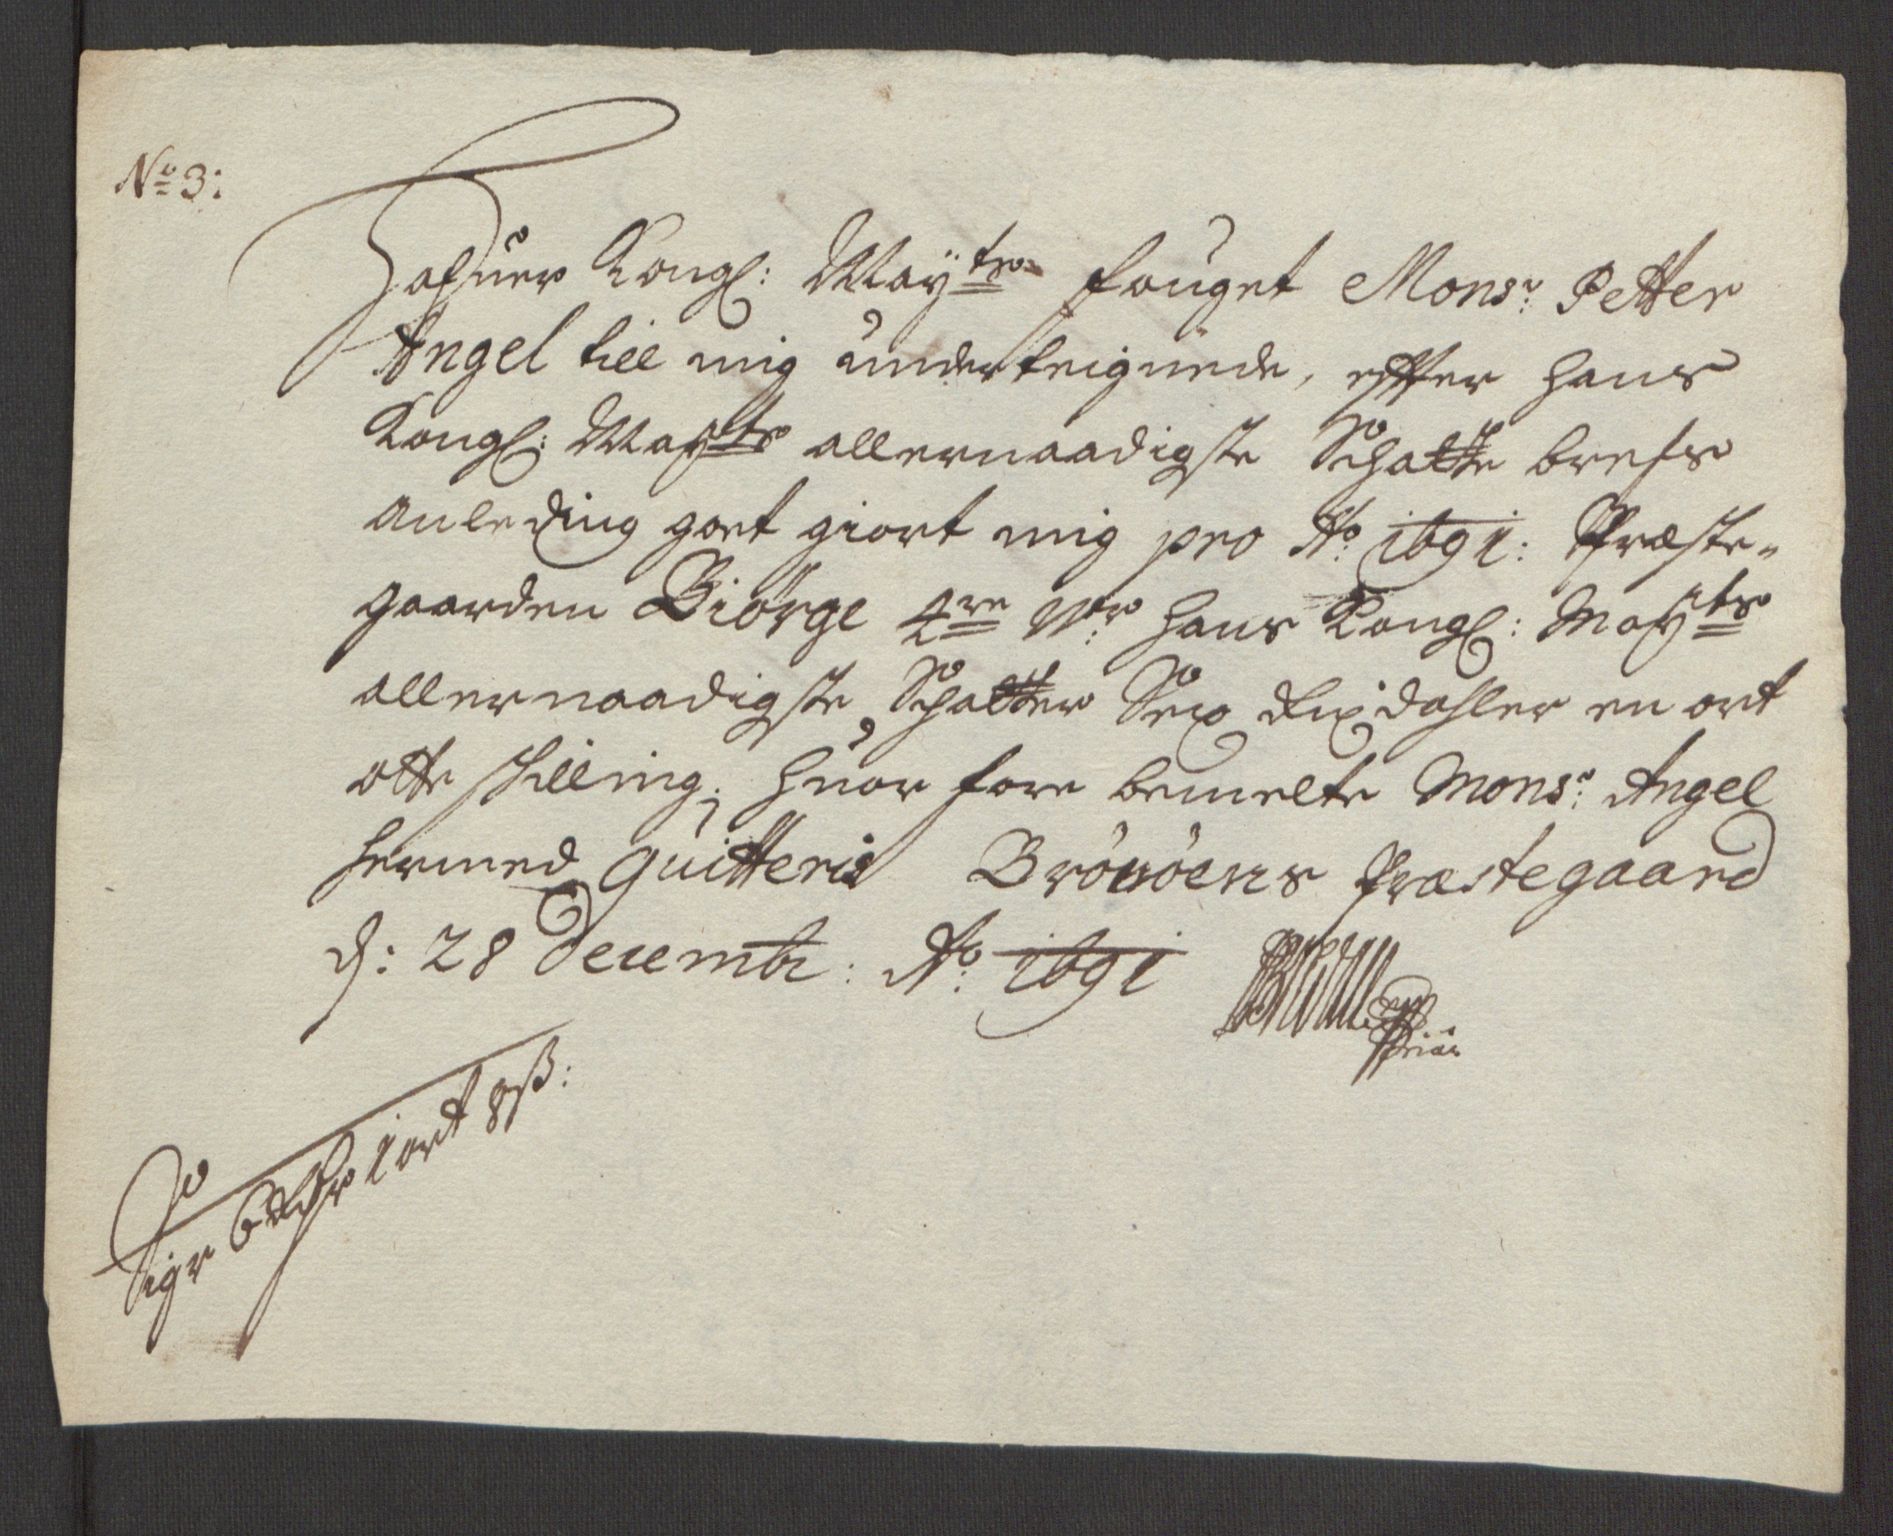 No 3:
Hafuer Kongl: Mayts fouget Monsr: Petter
Angel till mig underteignede, effter hans
Kongl: Mayts allernaadigste Schatte brefs
anleding got giort mig pro Ao: 1691: Præste-
gaarden Biörge hans Kongl: Mayts
allernaadigste Schatter Sex Rixdahler en ort
otte skilling, huor fore bemelte Monsr: Angel
hermed quitteris Brönöens Præstegaard
d: 28 Decembr: Ao: 1691
Siger 6 Rdlr 1 ort 8 ß: